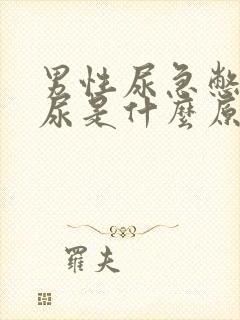 男性尿急憋
尿是什麼原
羅夫